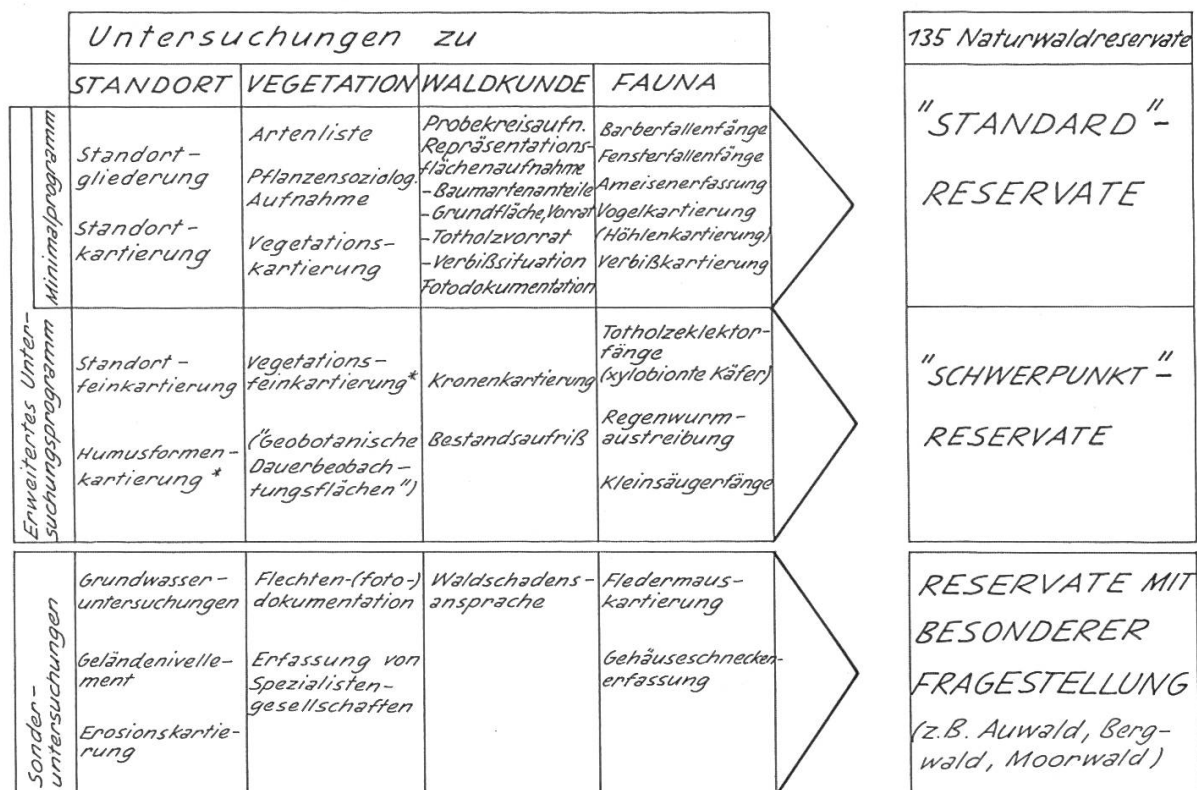 Untersuchungen zu
STANDORT
VEGETATION
WALDKUNDE
FAUNA
135 Naturwaldreservate
Erweitertes Unter-
suchungsprogramm
Minimalprogramm
Standort-
gliederung
Standort-
kartierung
Artenliste
Pflanzensoziolog.
Aufnahme
Vegetations-
kartierung
Probekreisaufn.
Repräsentations-
flächenaufnahme
-Baumartenanteile
-Grundfläche, Vorrat
-Totholzvorrat
-Verbißsituation
Fotodokumentation
Barberfallenfänge
Fensterfallenfänge
Ameisenerfassung
Vogelkartierung
(Höhlenkartierung)
Verbißkartierung
"STANDARD"-
RESERVATE
Standort-
feinkartierung
Humusformen-
kartierung *
Vegetations-
feinkartierung*
("Geobotanische
Dauerbeobach-
tungsflächen")
Kronenkartierung
Bestandsaufriß
Totholzeklektor-
fänge
(xylobionte Käfer)
Regenwurm-
austreibung
Kleinsäugerfänge
"SCHWERPUNKT"-
RESERVATE
Sonder-
untersuchungen
Grundwasser-
untersuchungen
Geländenivelle-
ment
Erosionskartie-
rung
Flechten-(foto-)
dokumentation
Erfassung von
Spezialisten-
gesellschaften
Waldschadens-
ansprache
Fledermaus-
kartierung
Gehäuseschnecken-
erfassung
RESERVATE MIT
BESONDERER
FRAGESTELLUNG
(z.B. Auwald, Berg-
wald, Moorwald)